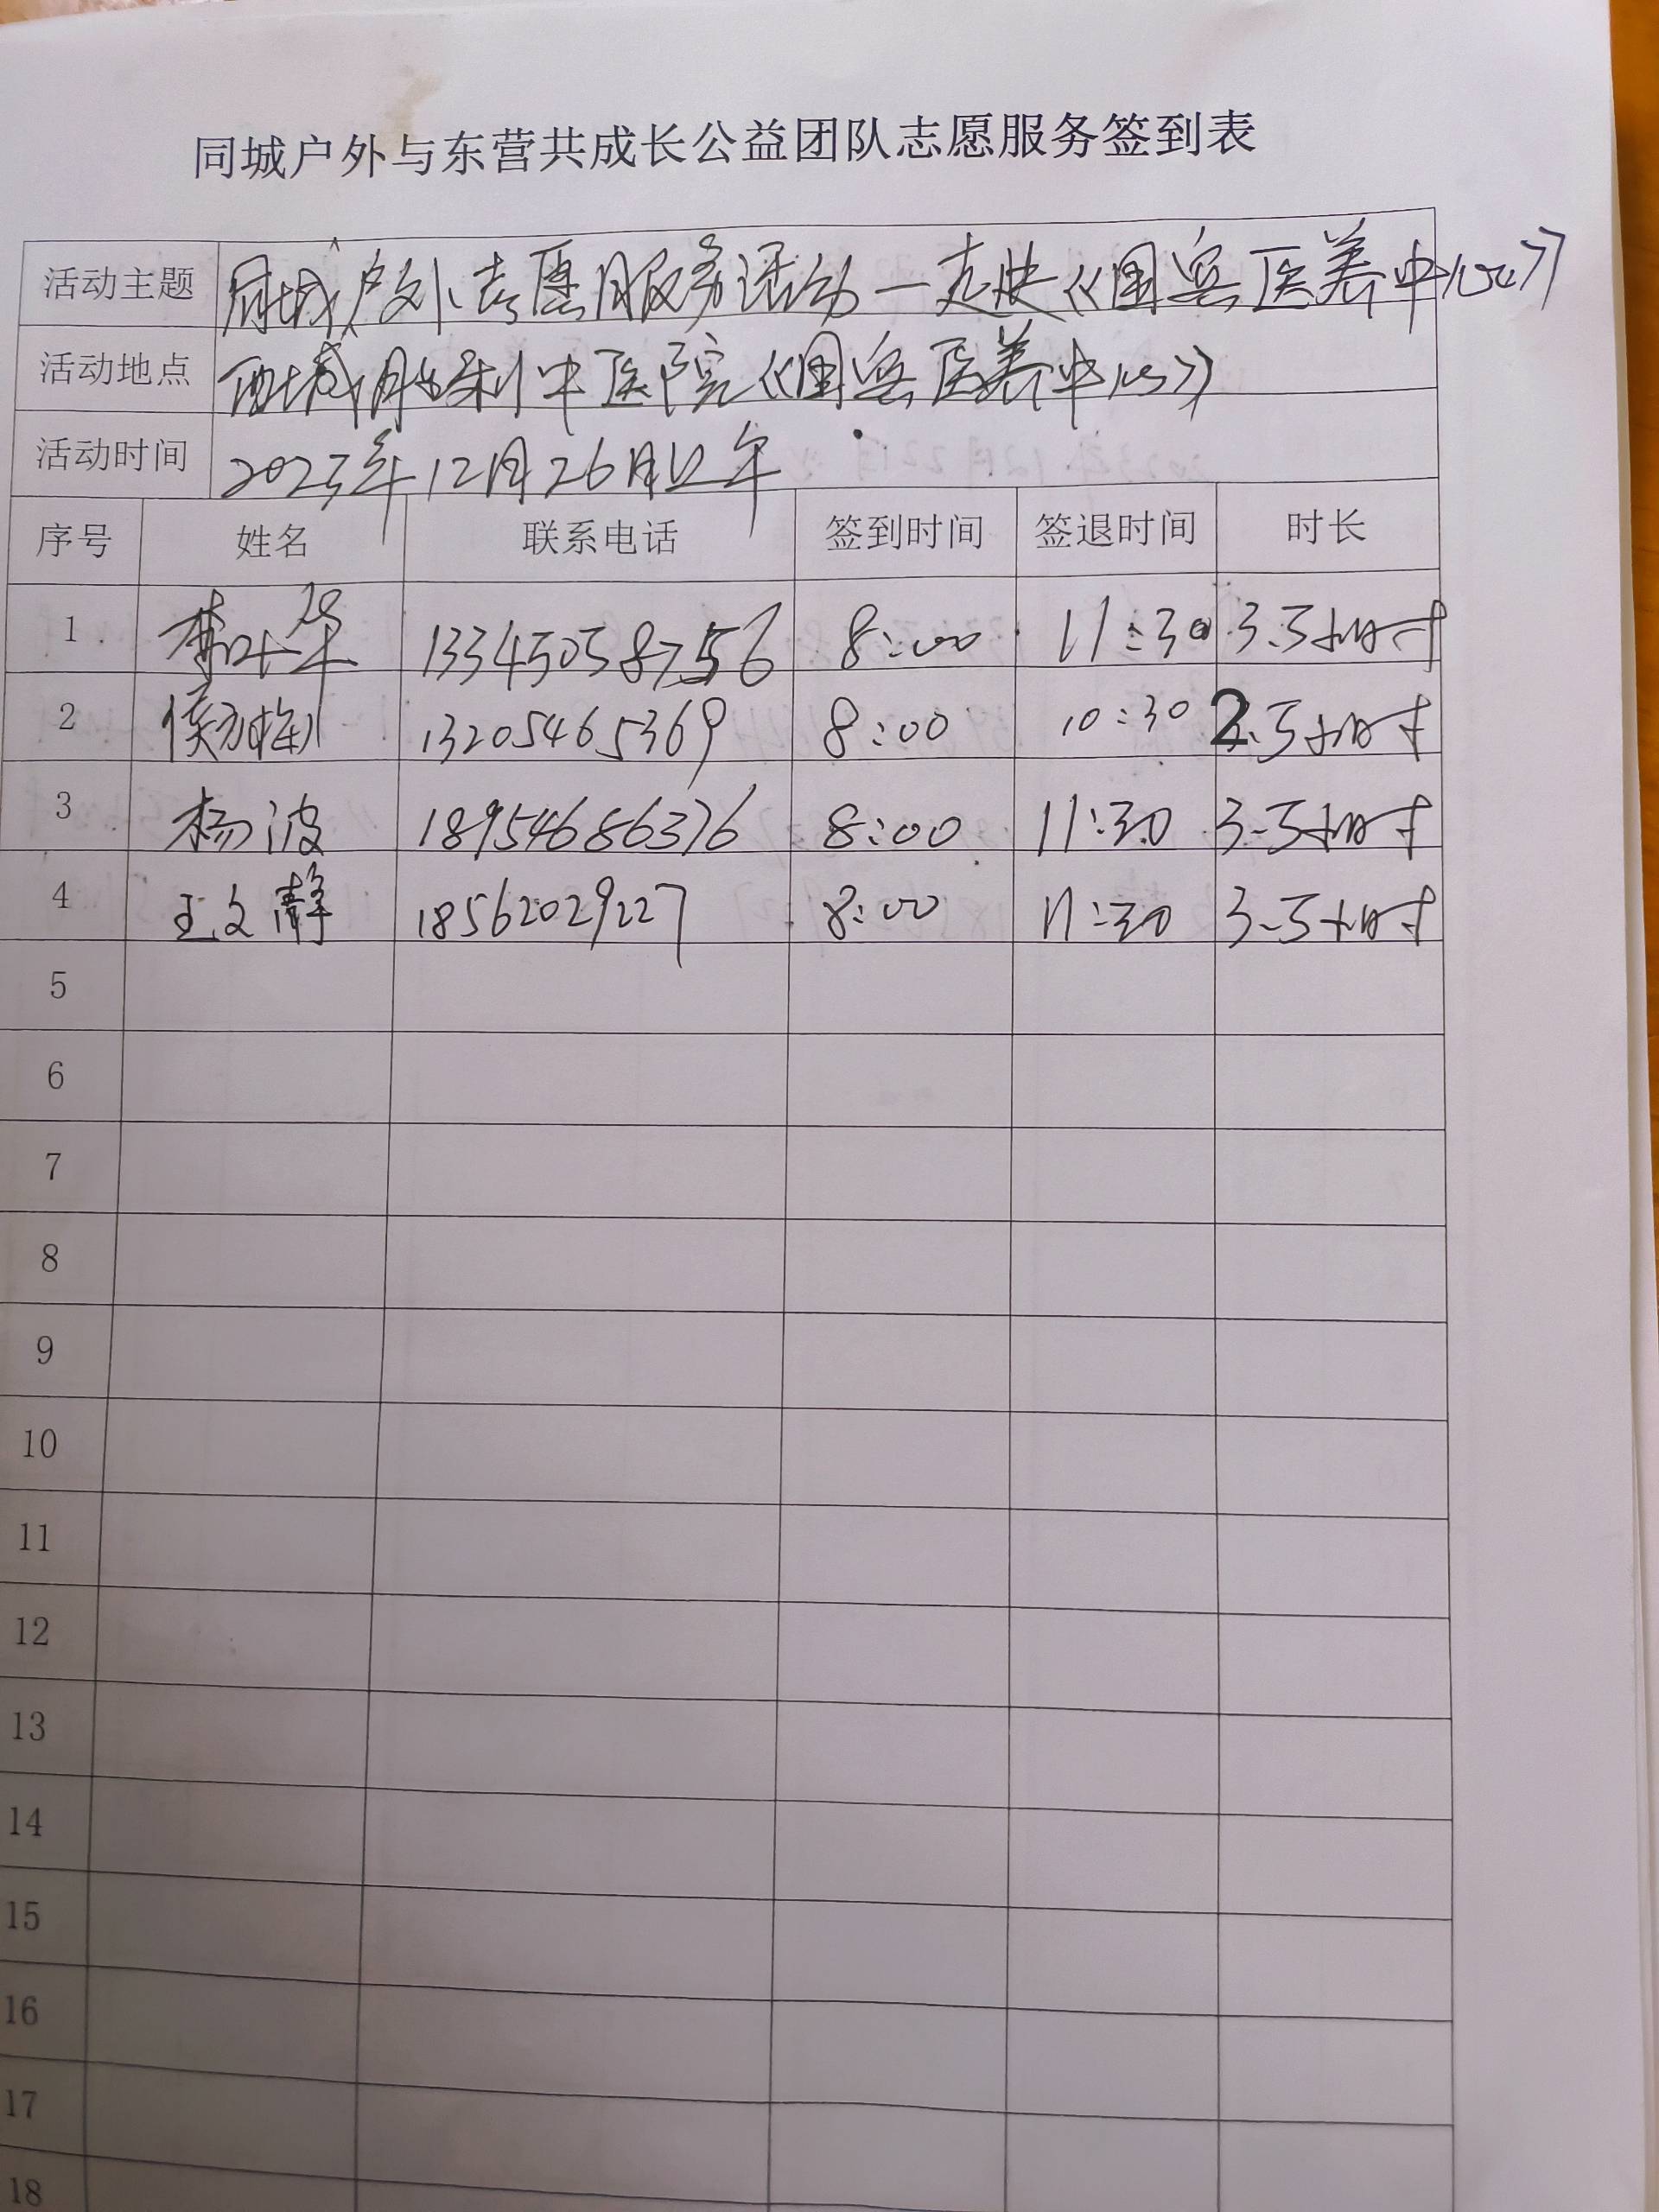 同城户外与东营共成长公益团队志愿服务签到表
活动主题 同城户外志愿服务活动一走进《国宾医养中心》
活动地点 西城胜利中医院《国宾医养中心》
活动时间 2023年12月26日上午
序号 姓名 联系电话 签到时间 签退时间 时长
1 李叶华 13345058756 8:00 11:30 3.5小时
2 侯梅 13205465369 8:00 10:30 2.5小时
3 杨波 18954686376 8:00 11:30 3.5小时
4 王文静 18562029227 8:00 11:30 3.5小时
5
6
7
8
9
10
11
12
13
14
15
16
17
18